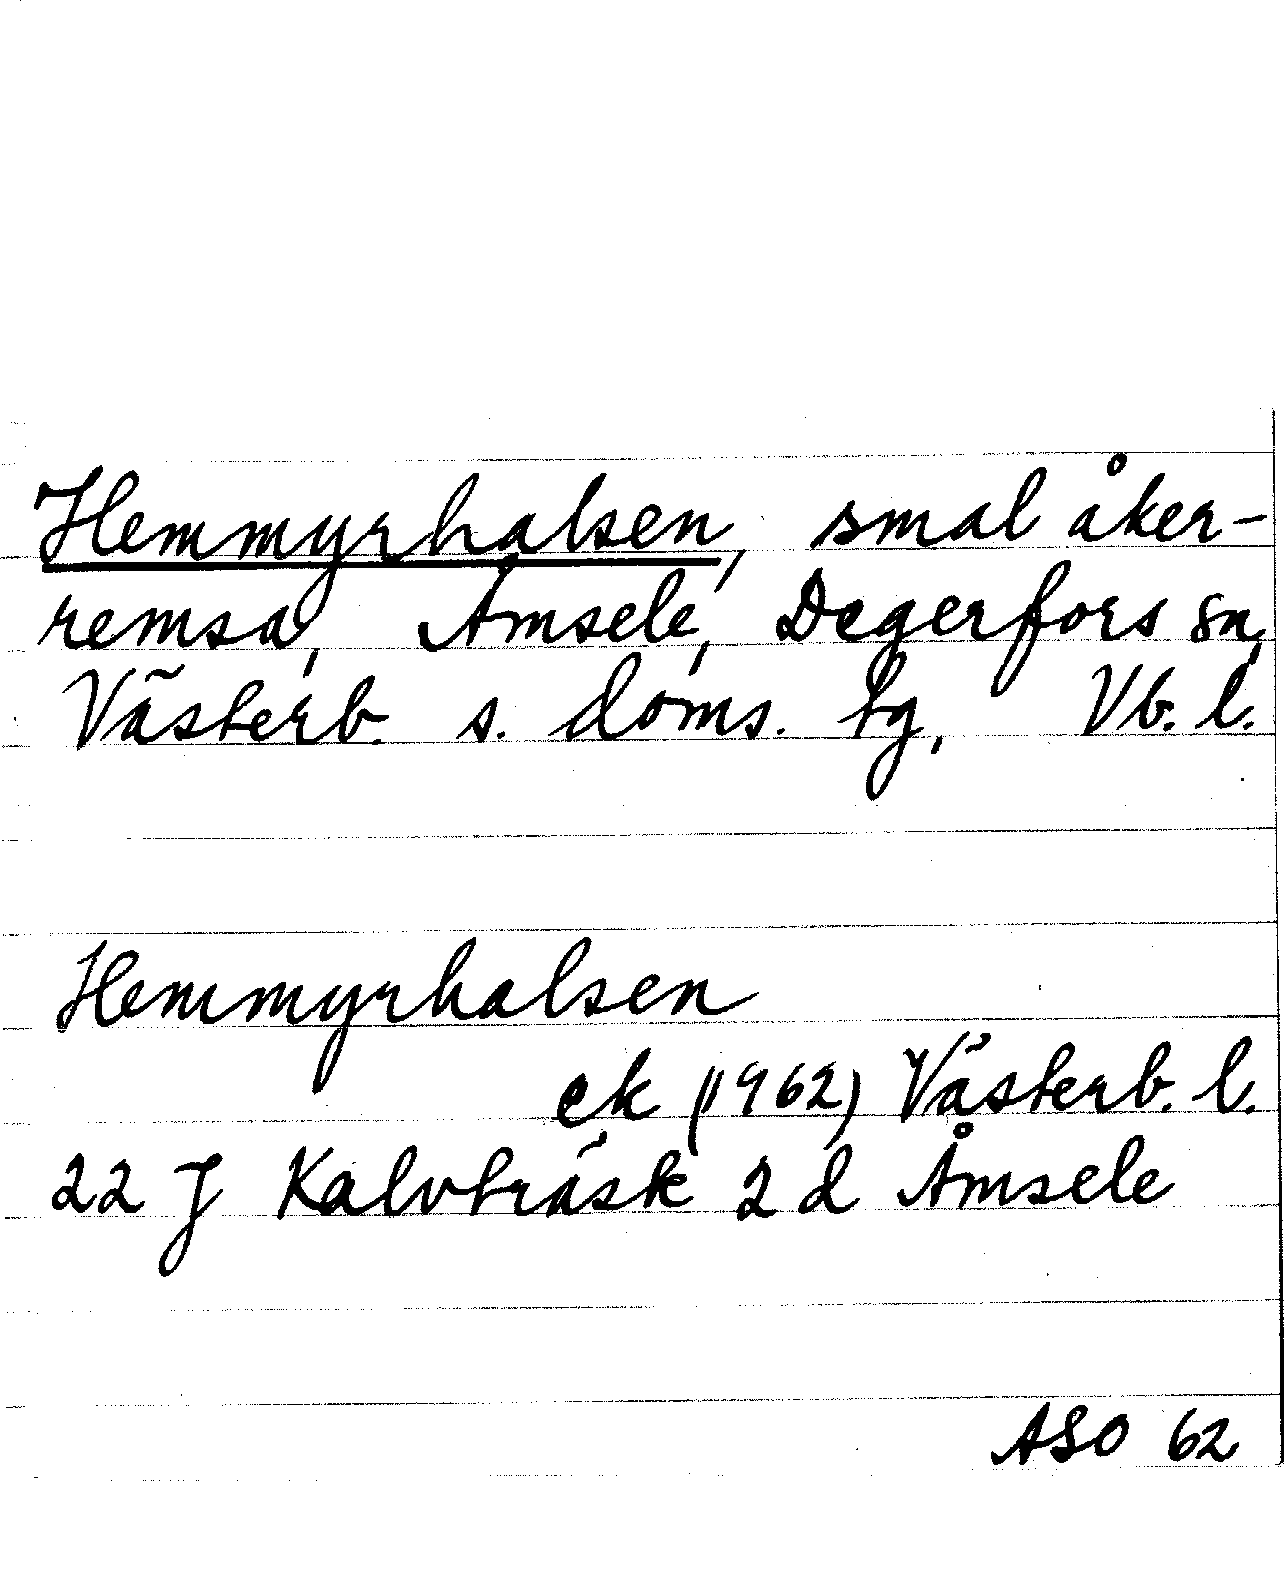 Hemmyrhalsen, smal åker-
remsa, Åmsele, Degerfors sn,
Västerb. s. doms. tg, Vb. l.
Hemmyrhalsen
ek (1962) Västerb. l.
22 J Kalvträsk 2 d Åmsele
ASO 62